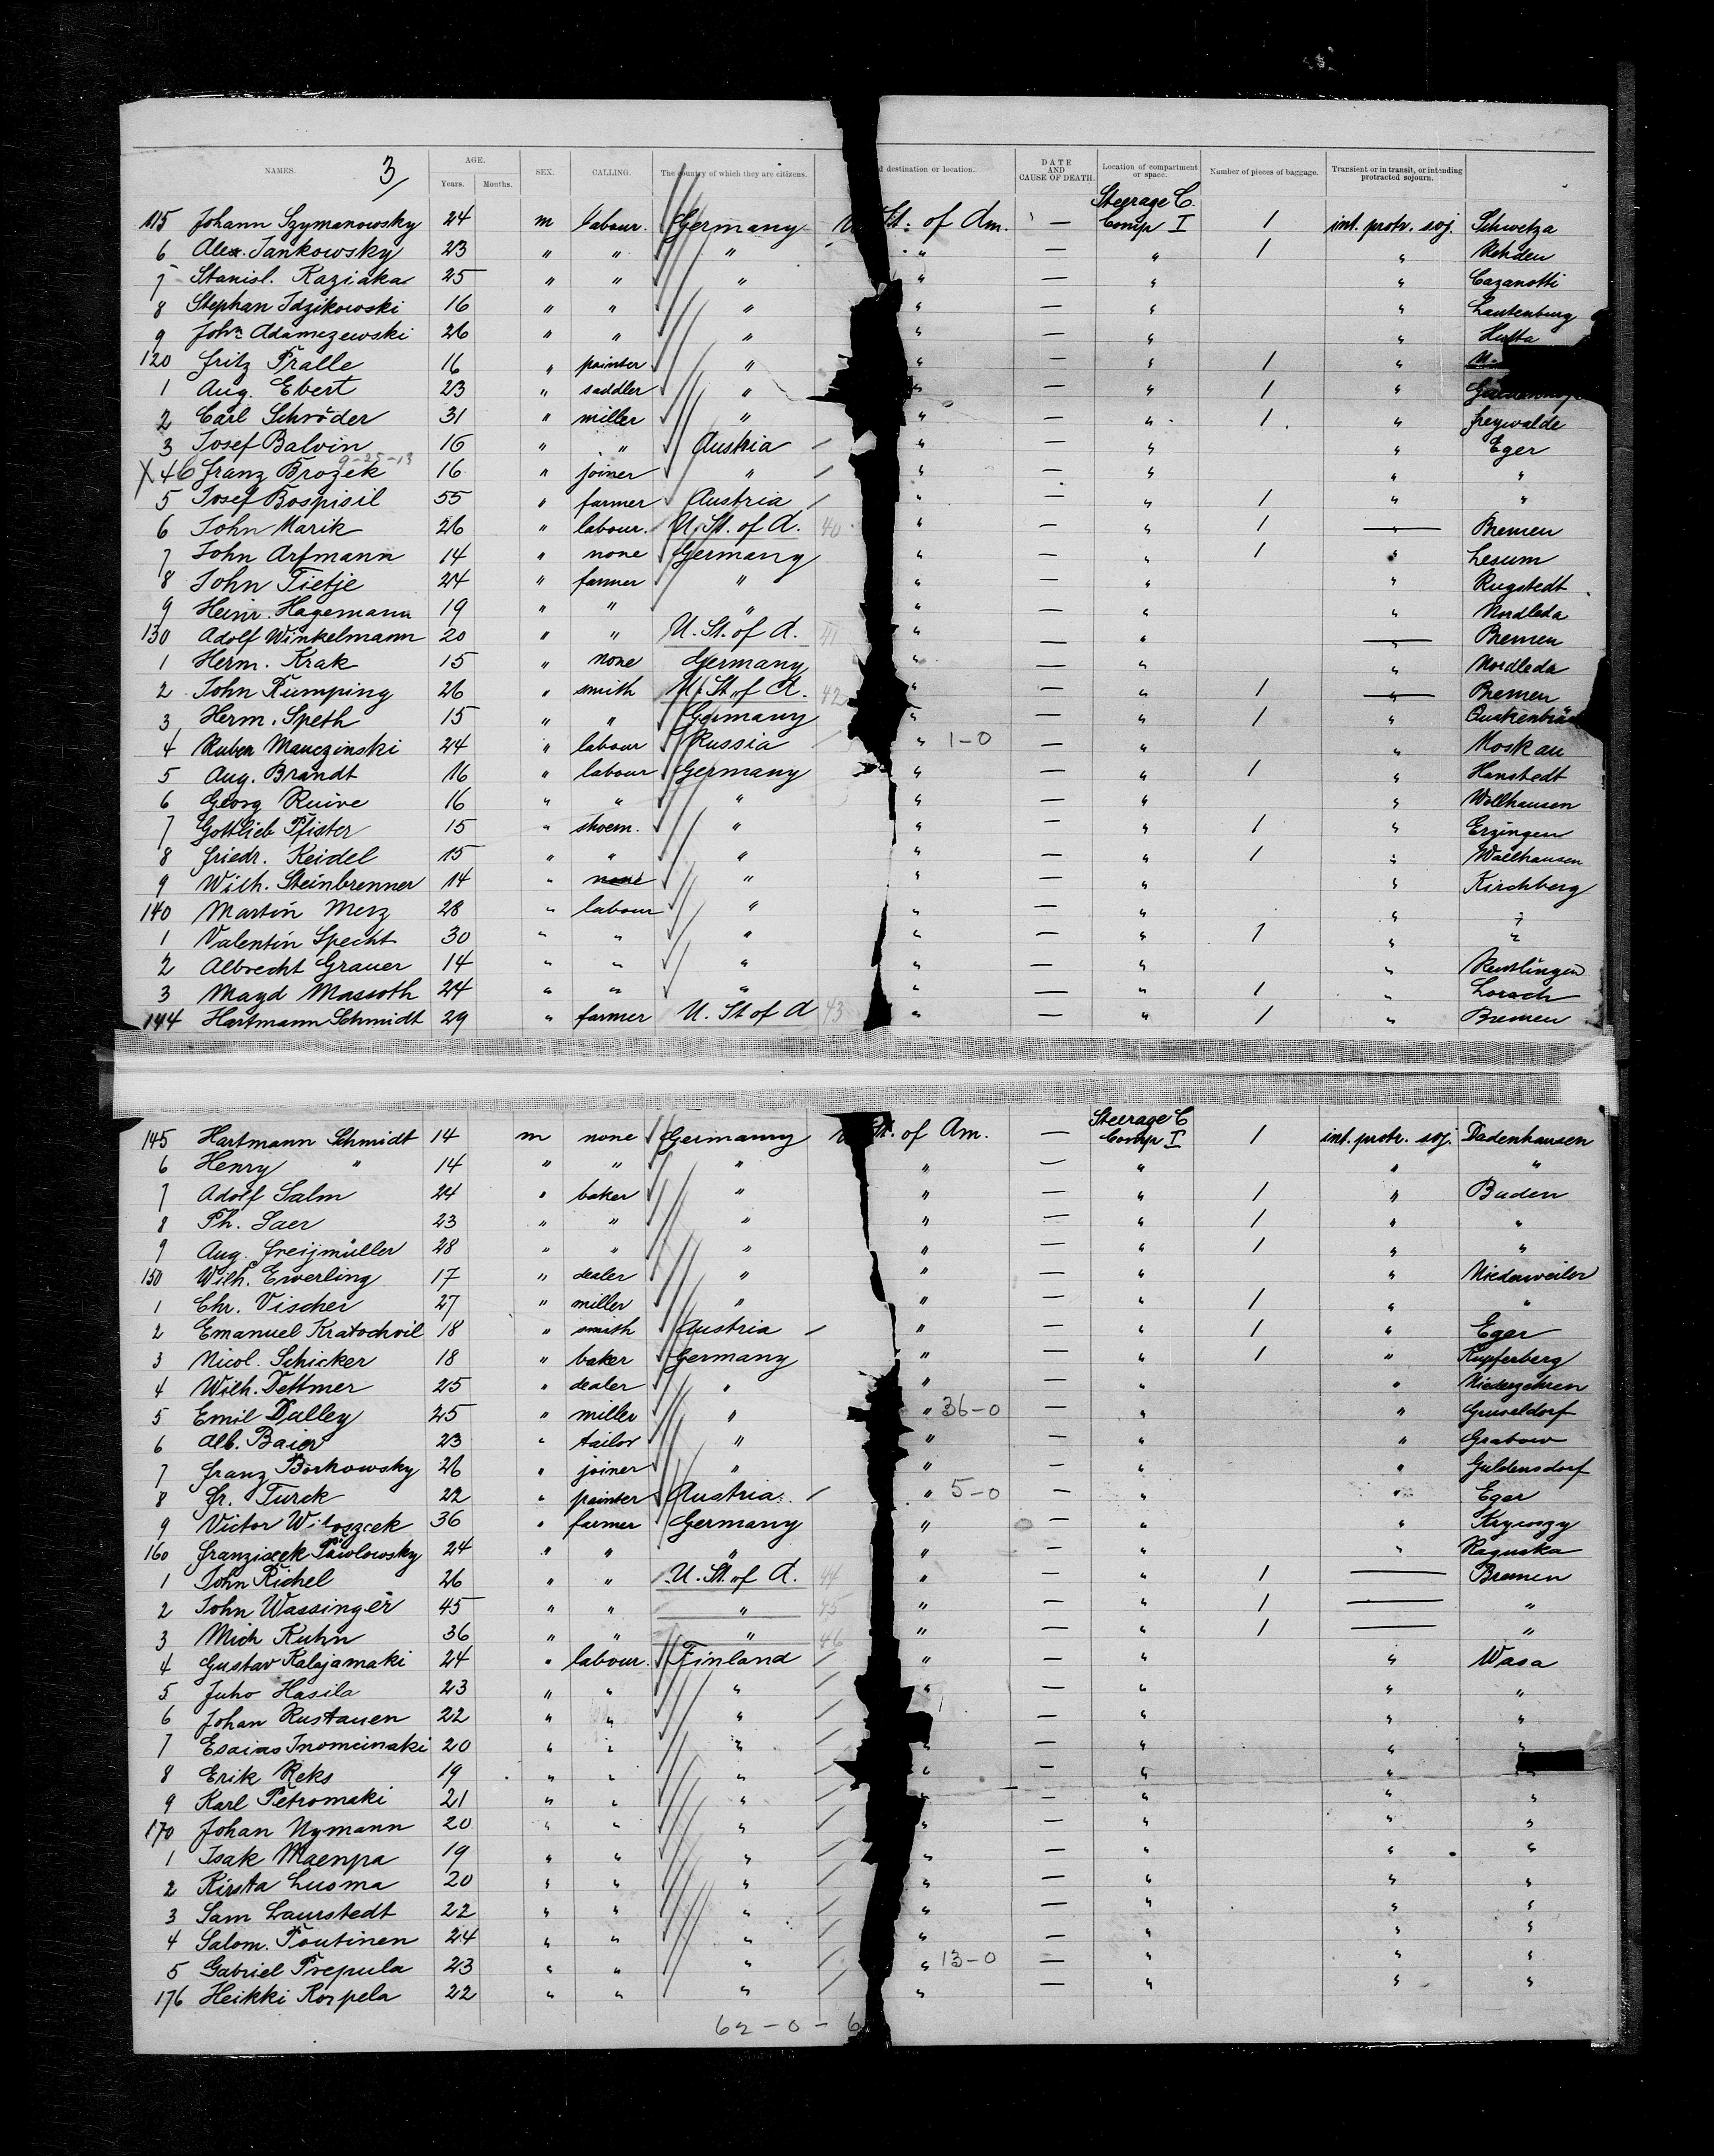 3
NAMES. AGE. SEX. CALLING. The country of which they are citizens. d destination or location. DATE AND CAUSE OF DEATH. Location of compartment or space. Number of pieces of baggage. Transient or in transit, or intending protracted sojourn.
Years. Months.
Steerage C.
115 Johann Szymanowsky 24 m labour. Germany St. of Am. — Comp I 1 int. protr. soj. Schwetza
6 Alex. Jankowsky 23 " " " " — " 1 " Rehden
7 Stanisl. Kaziaka 25 " " " " — " " Cazanotti
8 Stephan Idzikowski 16 " " " " — " " Lautenburg
9 Joh. Adamczewski 26 " " " " — " " Hutta
120 Fritz Pralle 16 " painter " " — " 1 "
1 Aug. Ebert 23 " saddler " " — " 1 "
2 Carl Schröder 31 " miller " " — " 1 " Freywalde
3 Josef Balvin 16 " " Austria " — " " Eger
9-25-13
X 46 Franz Brozek 16 " joiner " " — " " "
5 Josef Bospisil 55 " farmer Austria " — " 1 " "
6 John Marik 26 " labour. U. St. of A. 40 " — " 1 — Bremen
7 John Arfmann 14 " none Germany " — " 1 " Lesum
8 John Tietje 24 " farmer " " — " " Rugstedt
9 Heinr. Hagemann 19 " " " " — " " Nordleda
130 Adolf Winkelmann 20 " " U. St. of A. 41 " — " — Bremen
1 Herm. Krak 15 " none Germany " — " " Nordleda
2 John Rumping 26 " smith U. St. of A. 42 " — " 1 — Bremen
3 Herm. Speth 15 " " Germany " — " 1 "
4 Ruben Manczinski 24 " labour Russia " 1-0 — " " Moskau
5 Aug. Brandt 16 " labour Germany " — " 1 " Hanstedt
6 Georg Ruive 16 " " " " — " " Wollhausen
7 Gottlieb Pfister 15 " shoem. " " — " 1 " Erzingen
8 Friedr. Keidel 15 " " " " — " 1 " Wallhausen
9 Wilh. Steinbrenner 14 " none " " — " " Kirchberg
140 Martin Merz 28 " labour " " — " " "
1 Valentin Specht 30 " " " " — " 1 " "
2 Albrecht Grauer 14 " " " " — " " Reutlingen
3 Mayd Massoth 24 " " " " — " 1 " Lorsch
144 Hartmann Schmidt 29 " farmer U. St of A 43 " — " 1 " Bremen
Steerage C
145 Hartmann Schmidt 14 m none Germany St. of Am. — Comp I 1 int. protr. soj. Dadenhausen
6 Henry " 14 " " " " — " " "
7 Adolf Salm 24 " baker " " — " 1 " Baden
8 Ph. Saer 23 " " " " — " 1 " "
9 Aug. Freijmüller 28 " " " " — " 1 " "
150 Wilh. Ewerling 17 " dealer " " — " " Niederweiler
1 Chr. Vischer 27 " miller " " — " 1 " "
2 Emanuel Kratochvil 18 " smith Austria " — " 1 " Eger
3 Nicol. Schicker 18 " baker Germany " — " 1 " Kupferberg
4 Wilh. Dettmer 25 " dealer " " — " " Niederzehren
5 Emil Dalley 25 " miller " " 36-0 — " " Gruseldorf
6 Alb. Baier 23 " tailor " " — " " Grabow
7 Franz Borkowsky 26 " joiner " " — " " Guldensdorf
8 Fr. Turek 22 " painter Austria " 5-0 — " " Eger
9 Victor 36 " farmer Germany " — " " Krywszy
160 Franziscek Pawlowsky 24 " " " " — " " Raguska
1 John Richel 26 " " U. St. of A. 44 " — " 1 — Bremen
2 John Wassinger 45 " " " 45 " — " 1 — "
3 Mich Kuhn 36 " " " 46 " — " 1 — "
4 Gustav Kalajamaki 24 " labour. Finland " — " " Wasa
5 Juho Hasila 23 " " " " — " " "
6 Johan Rustanen 22 " " " " — " " "
7 Esaias 20 " " " " — " " "
8 Erik Reks 19 " " " " — " " "
9 Karl Petromaki 21 " " " " — " " "
170 Johan Nymann 20 " " " " — " " "
1 Isak Maenpa 19 " " " " — " " "
2 Kirsta Luoma 20 " " " " — " " "
3 Sam Laurstedt 22 " " " " — " " "
4 Salom. Poutinen 24 " " " " — " " "
5 Gabriel Prepula 23 " " " " 13-0 — " " "
176 Heikki Korpela 22 " " " " — " " "
62-0-6